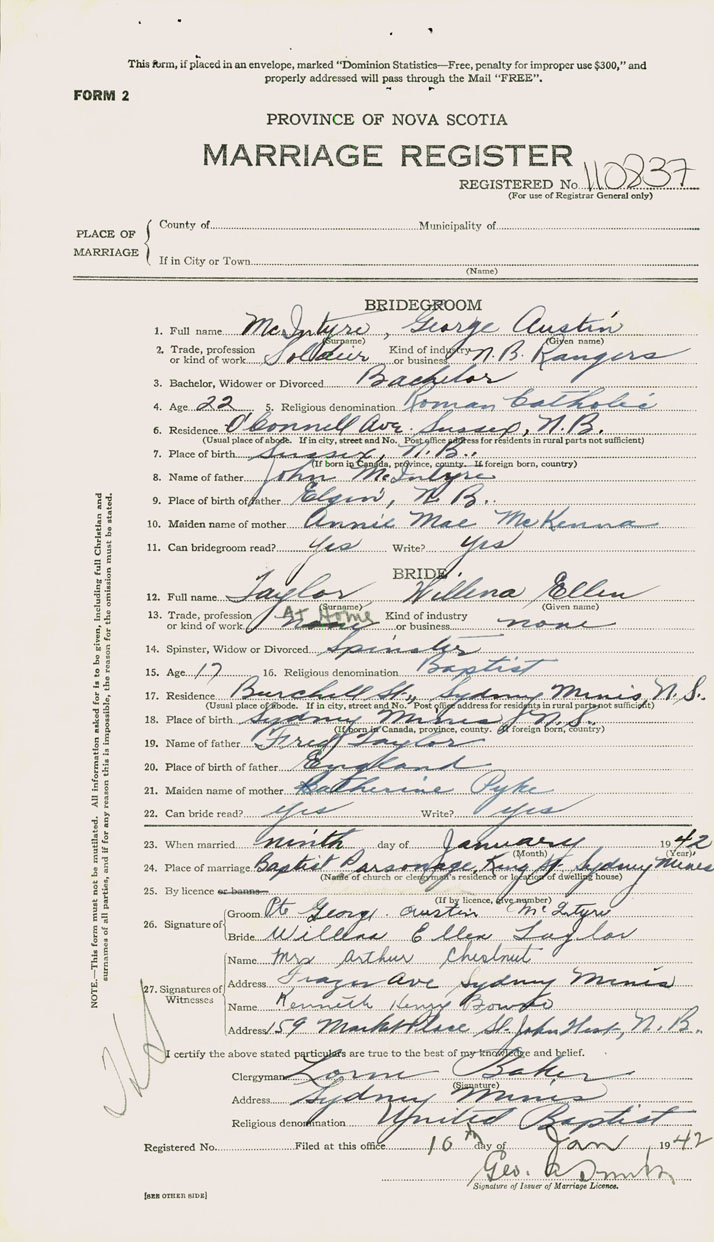 This form, if placed in an envelope, marked "Dominion Statistics—Free, penalty for improper use $300," and
properly addressed will pass through the Mail "FREE".
FORM 2
PROVINCE OF NOVA SCOTIA
MARRIAGE REGISTER
REGISTERED No. 110837
(For use of Registrar General only)
PLACE OF MARRIAGE
County of Municipality of
If in City or Town
(Name)
BRIDEGROOM
1. Full name McIntyre, George Austin
(Surname) (Given name)
2. Trade, profession or kind of work Soldier Kind of industry or business N.B. Rangers
3. Bachelor, Widower or Divorced Bachelor
4. Age 22 5. Religious denomination Roman Catholic
6. Residence O'Connell Ave Sussex, N.B.
(Usual place of abode. If in city, street and No. Post office address for residents in rural parts not sufficient)
7. Place of birth Sussex, N.B.
(If born in Canada, province, county. If foreign born, country)
8. Name of father John McIntyre
9. Place of birth of father Elgin, N.B.
10. Maiden name of mother Annie Mae McKenna
11. Can bridegroom read? Yes Write? Yes
BRIDE
12. Full name Taylor Willena Ellen
(Surname) (Given name)
13. Trade, profession or kind of work At Home Kind of industry or business none
14. Spinster, Widow or Divorced Spinster
15. Age 17 16. Religious denomination Baptist
17. Residence Burchell St., Sydney Mines, N.S.
(Usual place of abode. If in city, street and No. Post office address for residents in rural parts not sufficient)
18. Place of birth Sydney Mines, N.S.
(If born in Canada, province, county. If foreign born, country)
19. Name of father Fred Taylor
20. Place of birth of father England
21. Maiden name of mother Katherine Pyke
22. Can bride read? yes Write? yes
23. When married ninth day of January 1942
(Month) (Year)
24. Place of marriage Baptist Parsonage, King St. Sydney Mines
(Name of church or clergyman's residence or location of dwelling house)
25. By licence or banns
(If by licence, give number)
26. Signature of
Groom Pte George Austin McIntyre
Bride Willena Ellen Taylor
27. Signatures of Witnesses
Name Mrs Arthur Chestnut
Address Frazer Ave Sydney Mines
Name Kenneth Henry
Address 159 Market Place St. John West, N.B.
I certify the above stated particulars are true to the best of my knowledge and belief.
Clergyman Lorne Baker
(Signature)
Address Sydney Mines
Religious denomination United Baptist
Registered No. Filed at this office 10th day of Jan 1942
Geo. A Smith
Signature of Issuer of Marriage Licence.
[SEE OTHER SIDE]
NOTE.—This form must not be mutilated. All information asked for is to be given, including full Christian and
surnames of all parties, and if for any reason this is impossible, the reason for the omission must be stated.